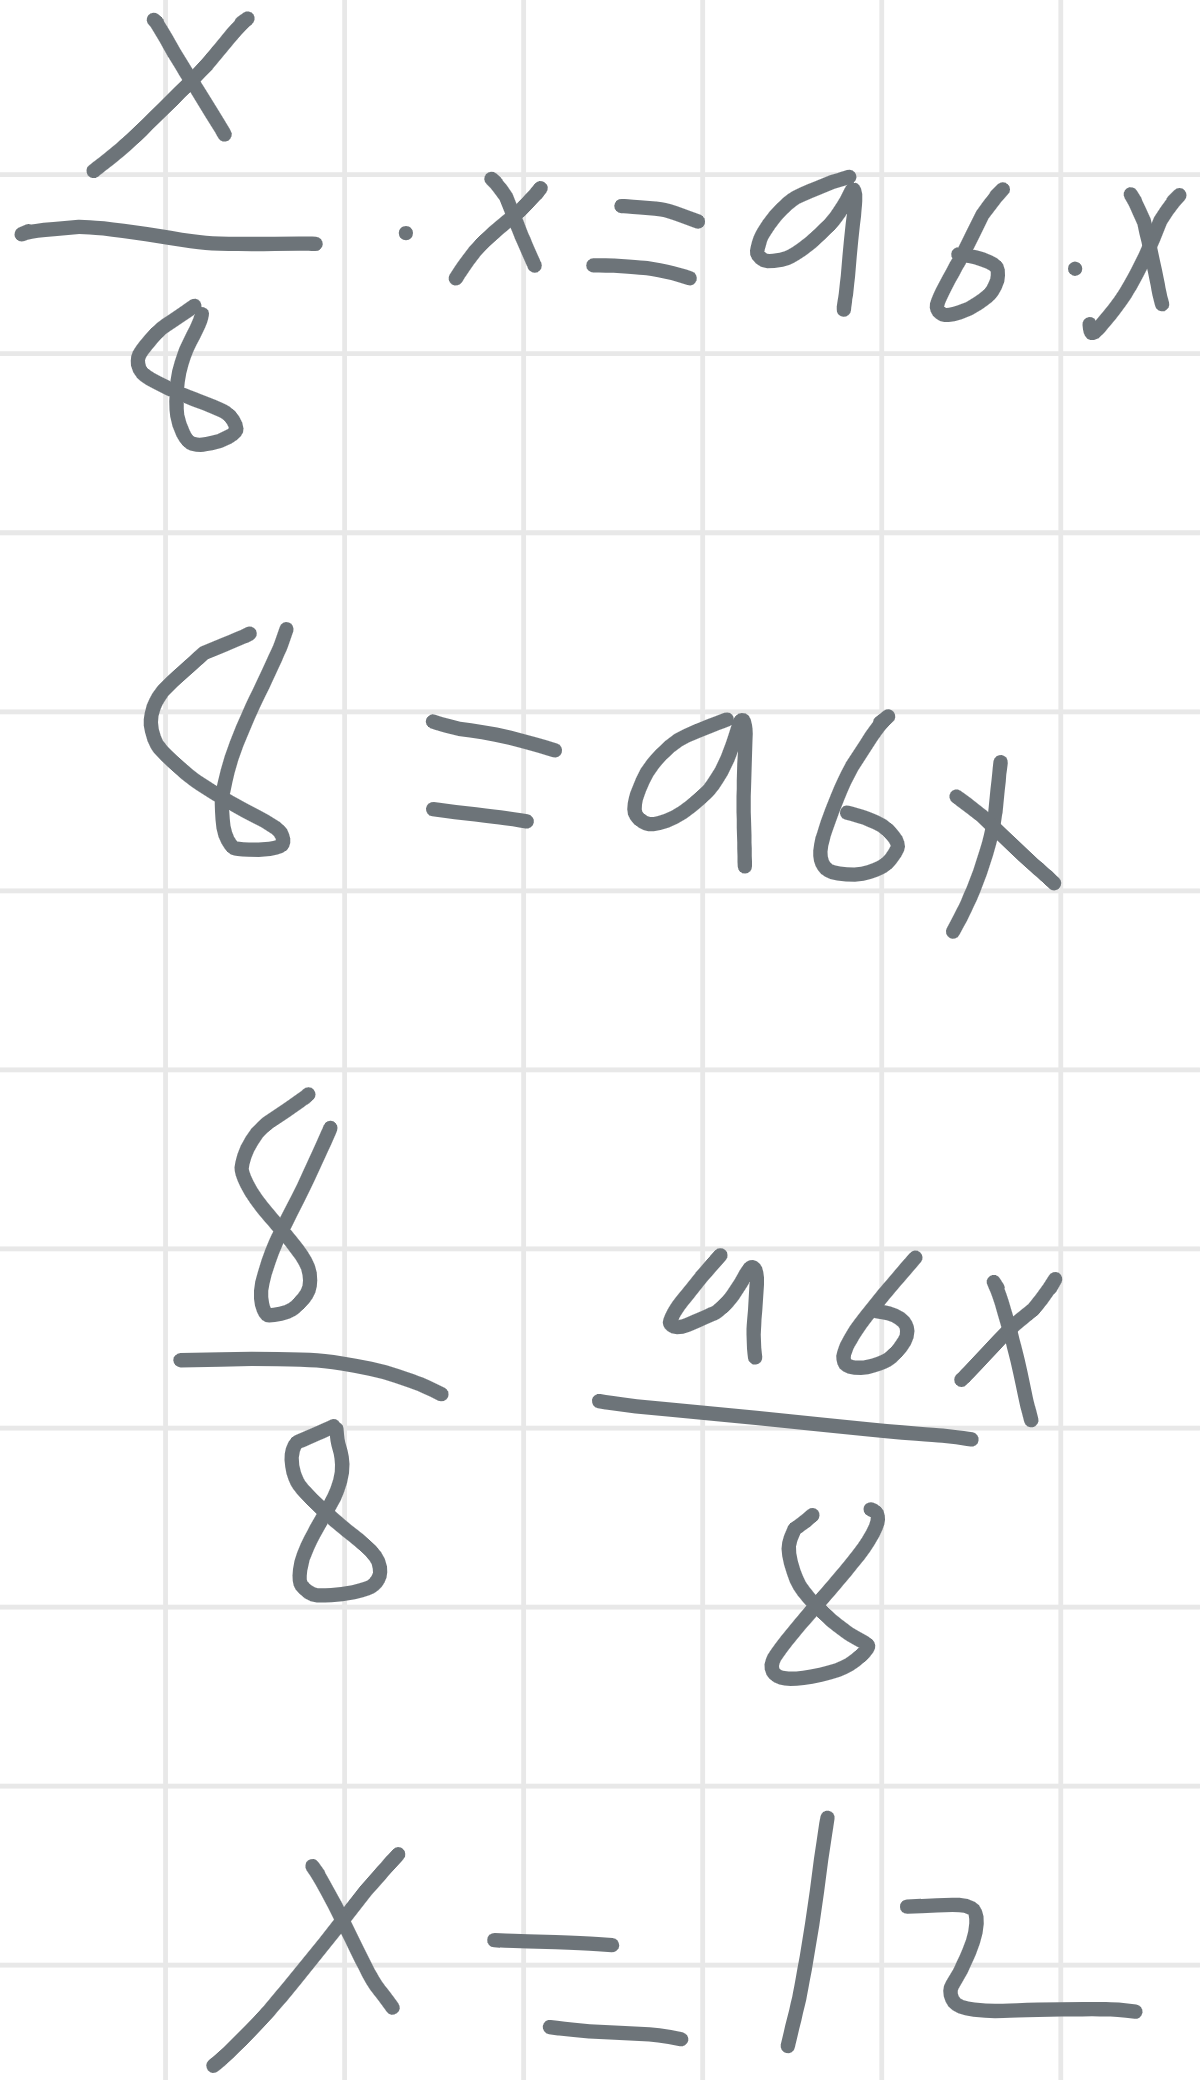 x/8 · x = 96 · x
8 = 96x
8/8 96x/8
x = 12